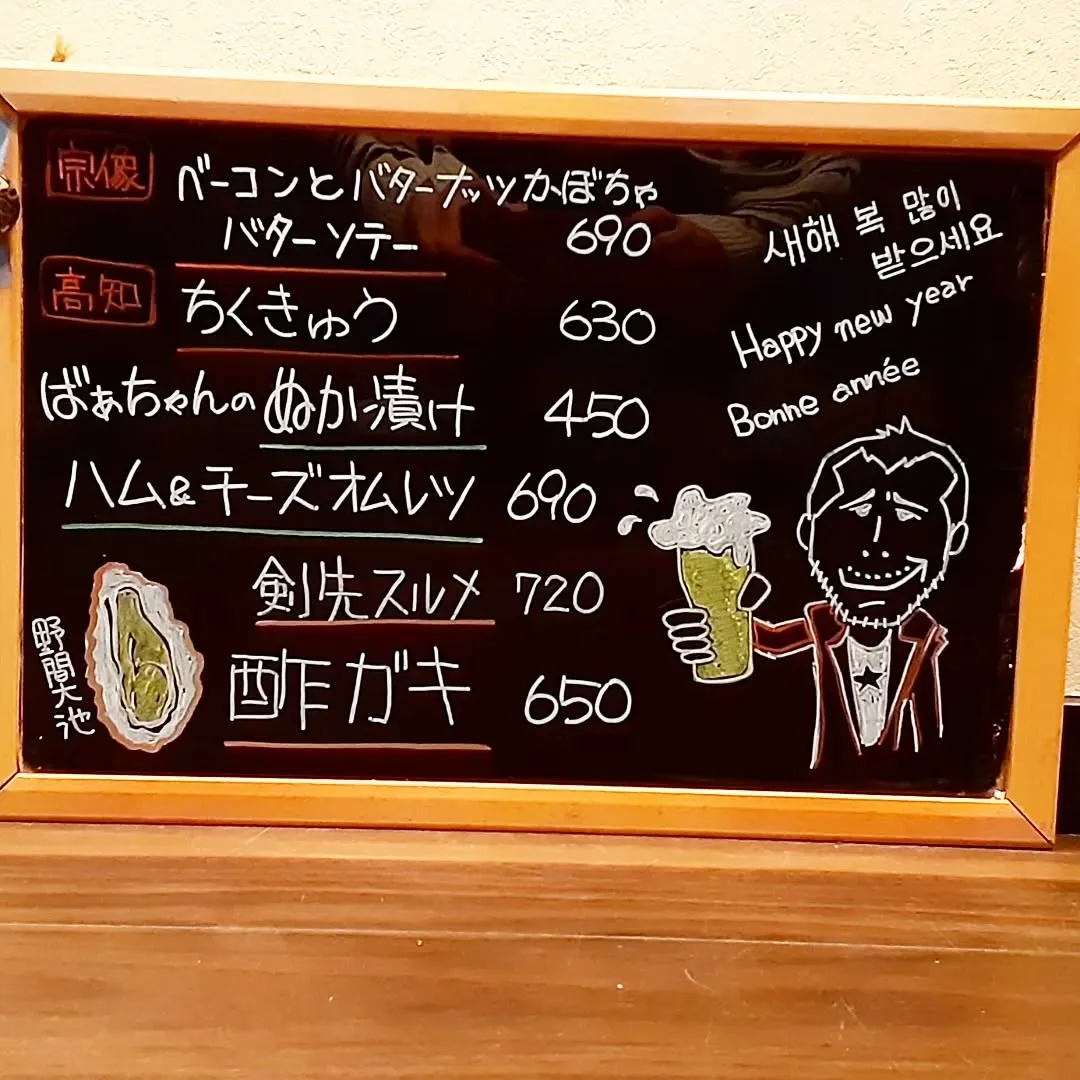 宗像
ベーコンとバターナッツかぼちゃ
バターソテー 690
高知
ちくきゅう 630
ばぁちゃんのぬか漬け 450
ハム&チーズオムレツ 690
剣先スルメ 720
酢ガキ 650
野間大池
새해 복 많이
받으세요
Happy new year
Bonne année